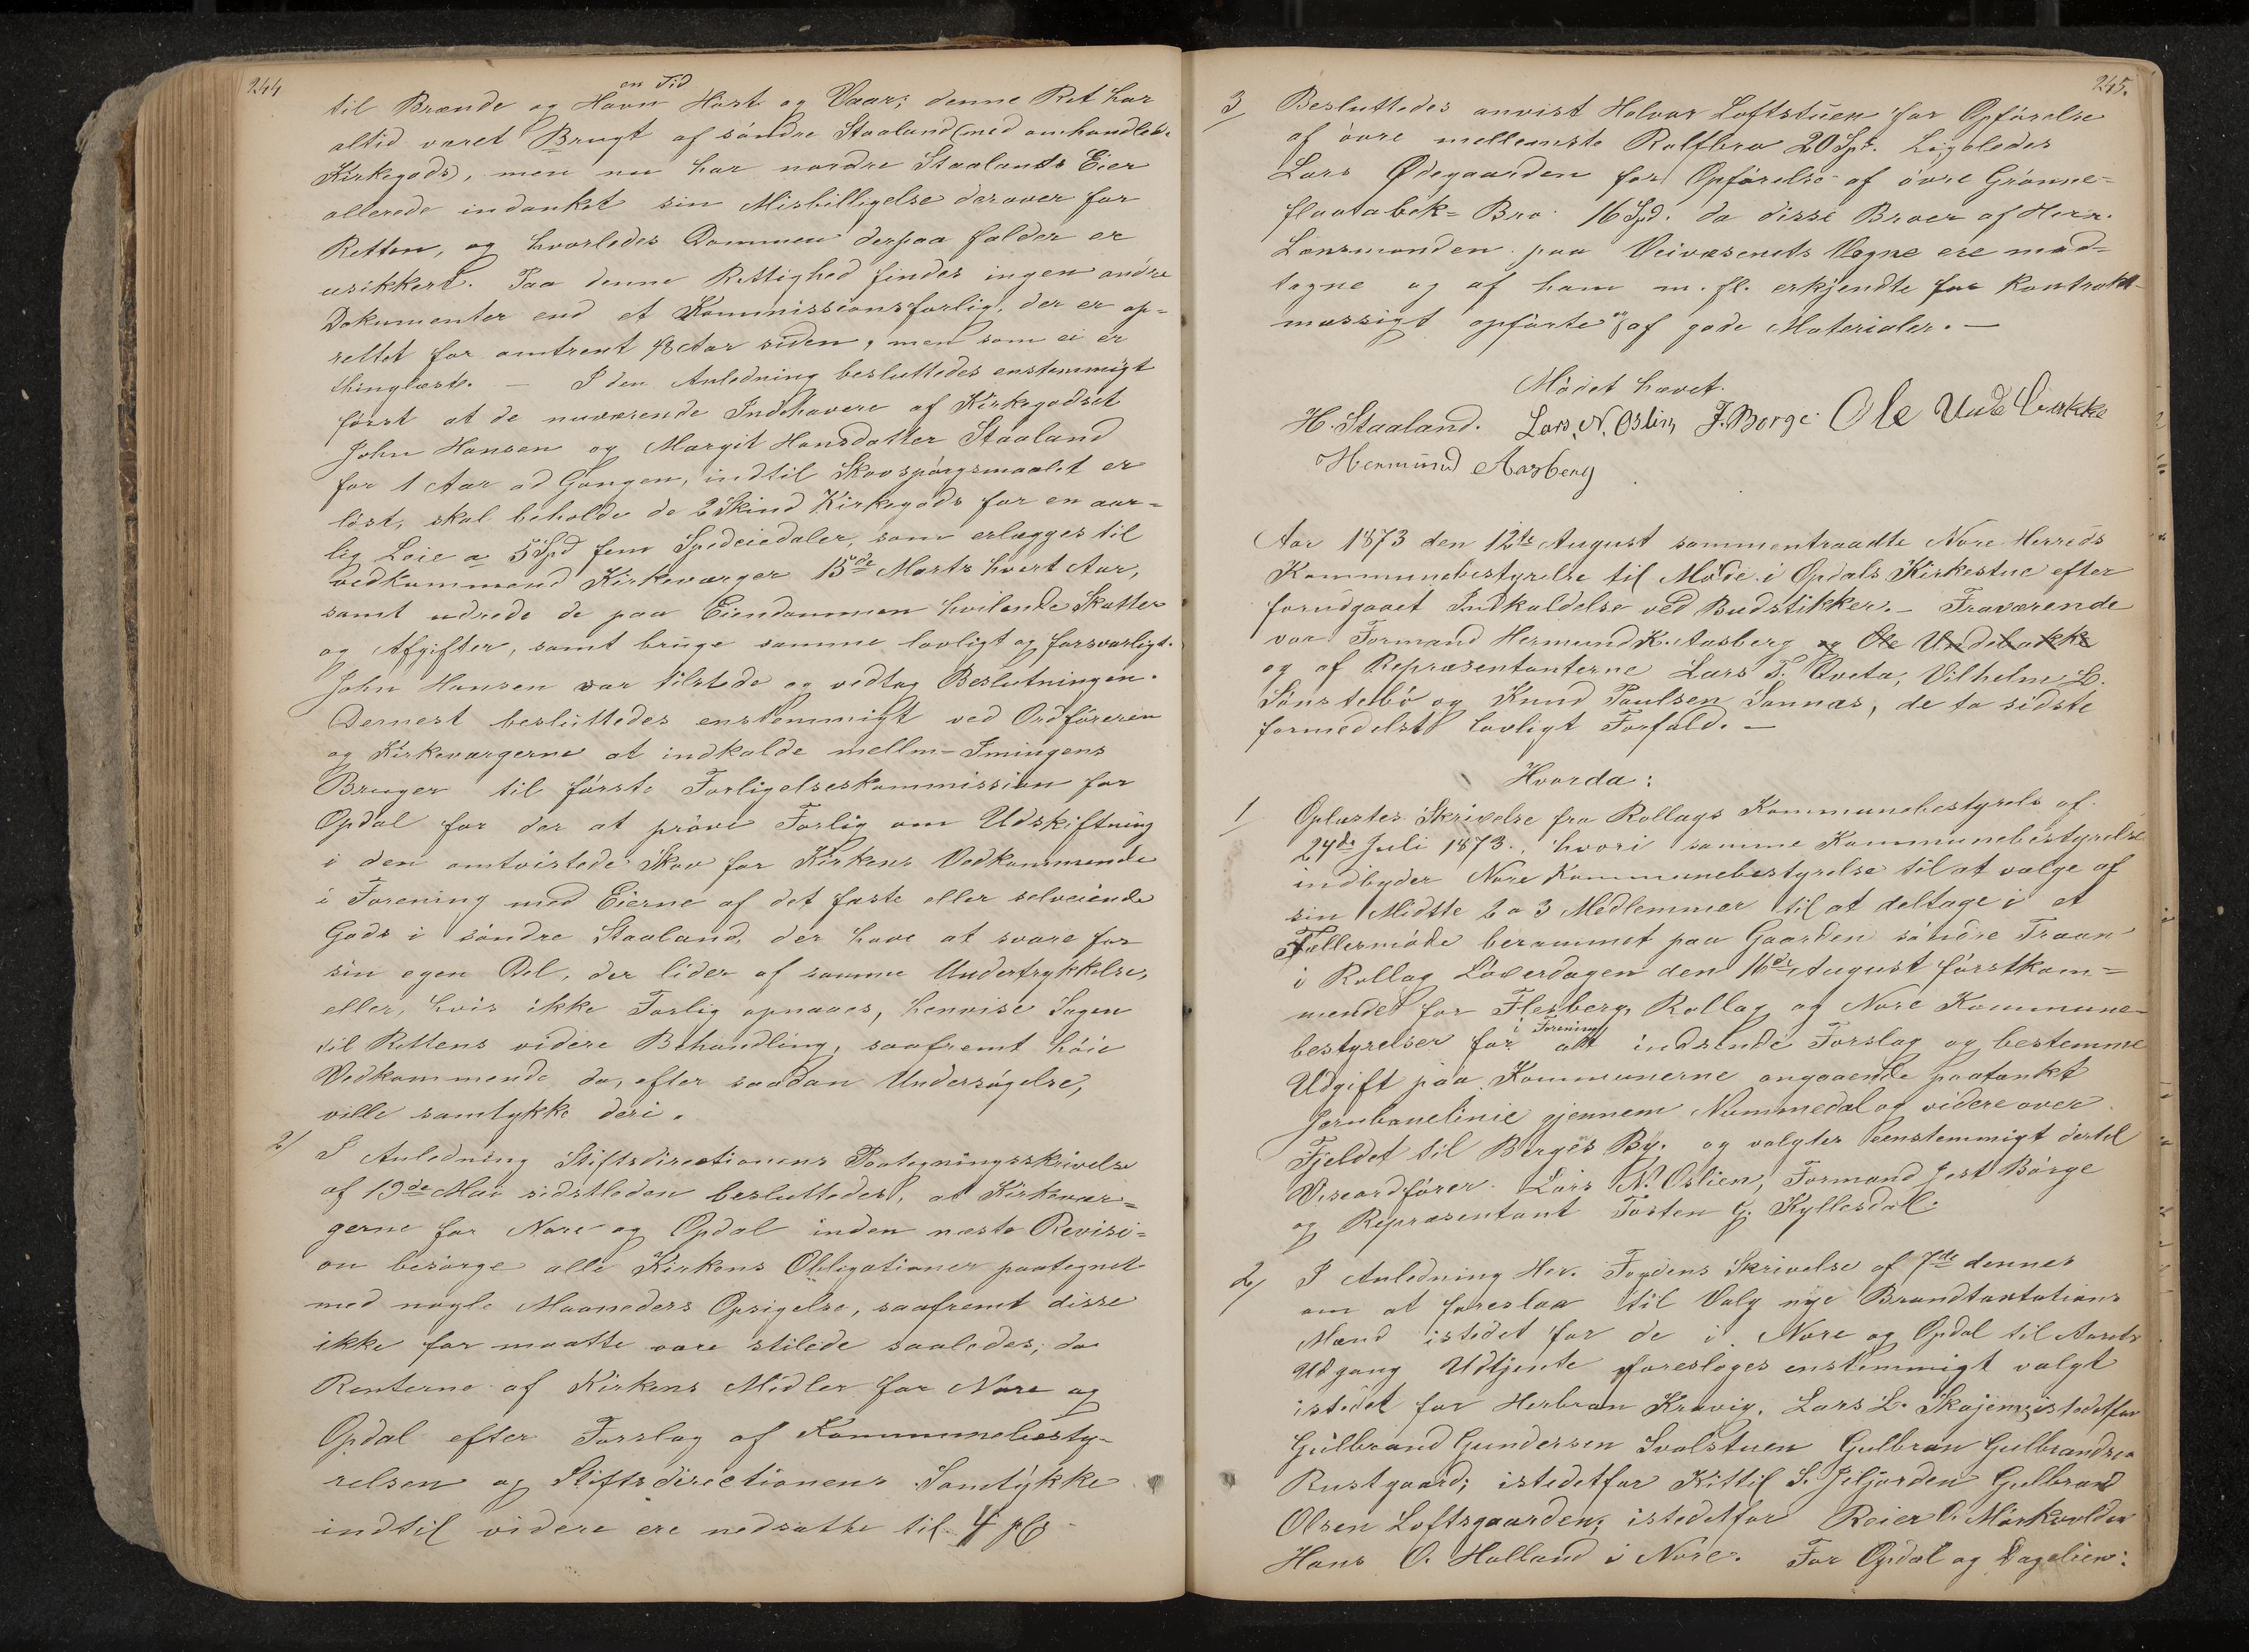 244
til Brænde og Havn en Tid Höst og Vaar; denne Ret har
altid været Brugt af söndre Staaland (med omhandlede
Kirkegods), men nu har nordre Staalands Eier
allerede indanket sin Misbilligelse derover for
Retten, og hvorledes Dommen derpaa falder er
usikkert. Paa denne Rettighed findes ingen andre
Dokumenter end et Kommissionsforlig, der er op-
rettet for omtrent 18 Aar siden, men som ei er
thinglæst. — I den Anledning besluttedes enstemmigt
först at de nuværende Indehavere af Kirkegodset
John Hansen og Margit Hansdatter Staaland
for 1 Aar ad Gangen, indtil Skovspörgsmaalet er
löst, skal beholde de 2 Skind Kirkegods for en aar-
lig Leie a 5 Spd fem Speciedaler, som erlægges til
vedkommend Kirkeværger 15de Marts hvert Aar,
samt udrede de paa Eiendommen hvilende Skatter
og Afgifter, samt bruge samme lovligt og forsvarligt.
John Hansen var tilstede og vedtog Beslutningen.
Dernest besluttedes enstemmigt ved Ordföreren
og Kirkeværgerne at indkalde mellm-Imingens
Bruger til förste Forligelseskommission for
Opdal for der at pröve Forlig om Udskiftning
i den omtvistede Skov for Kirkens Vedkommende
i Forening med Eierne af det faste eller selveiende
Gods i söndre Staaland, der have at svare for
sin egen Del, der lider af samme Undertrykkelse,
eller, hvis ikke Forlig opnaaes, henvise Sagen
til Rettens videre Behandling, saafremt höie
Vedkommende da, efter saadan Undersögelse,
ville samtykke deri.
2/ I Anledning Stiftsdirectionens Paategningsskrivelse
af 19de Mai sidstleden besluttedes, at Kirkevær-
gerne for Nore og Opdal inden næste Revisi-
on besörge alle Kirkens Obligationer paategnet
med nogle Maaneders Opsigelse, saafremt disse
ikke for maatte være stilede saaledes, da
Renterne af Kirkens Midler for Nore og
Opdal efter Forslag af Kommunebesty-
relsen og Stiftsdirectionens Samtykke
indtil videre ere nedsatte til 4 pC
245.
3/ Besluttedes anvist Halvor Loftstuen for Opförelse
af övre mellemste Rolfbro 20 Spd. Ligeledes
Lars Ødegaarden for Opförelse af övre Grönne-
flaatabek-Bro 16 Spd. da disse Broer af Herr.
Lensmanden paa Veivæsenets Vegne ere mod-
tagne og af ham m. fl. erkjendte for kontrakt-
mæssigt opförte og af gode Materialer. —
Mödet hævet.
H. Staaland. Lars. N. Oslien J. Borge Ole Underbakke
Hermund Aasberg
Aar 1873 den 12te August sammentraadte Nore Herreds
Kommunebestyrelse til Möde i Opdals Kirkestue efter
forudgaaet Indkaldelse ved Budstikker. — Fraværende
var Formand Hermund K. Aasberg og Ole Undebakke
og af Repræsentanterne Lars T. Tveta, Vilhelm L.
Sönstebö og Knud Paulsen Sønnæs, de to sidste
formedelst lovligt Forfald. —
Hvorda:
1/ Oplæstes Skrivelse fra Rollags Kommunebestyrels af
24de Juli 1873., hvori samme Kommunebestyrelse
indbyder Nore Kommunebestyrelse til at vælge af
sin Midtte 2 a 3 Medlemmer til at deltage i et
Fællermöde berammet paa Gaarden söndre Traan
i Rollag Löverdagen den 16de August förstkom-
mende for Flesberg, Rollag og Nore Kommune-
bestyrelser for i Forening at indsende Forslag og bestemme
Udgift paa Kommunerne angaaende paatænkt
Jernbanelinie gjennem Nummedal og videre over
Fjeldet til Berges By. og valgtes eenstemmigt dertil
Viseordförer Lars N. Oslien, Formand Jest Börge
og Repræsentant Torsten G. Kyllesdal.
2/ I Anledning Her. Fogdens Skrivelse af 7de dennes
om at foreslaa til Valg nye Brandtaxtations
Mænd istedet for de i Nore og Opdal til Aarets
Udgang Udtjente foresloges enstemmigt valgt
istedet for Herbran Kravig, Lars L. Skjem, istedetfor
Gulbrand Gundersen Svalstuen Gulbran Gulbrandsen
Rustgaard; istedetfor Kittil S. Jeljorden Gulbrand
Olsen Loftsgaarden; istedetfor Reier O. Mörkvolden
Hans O. Halland i Nore. For Opdal og Dagelien: